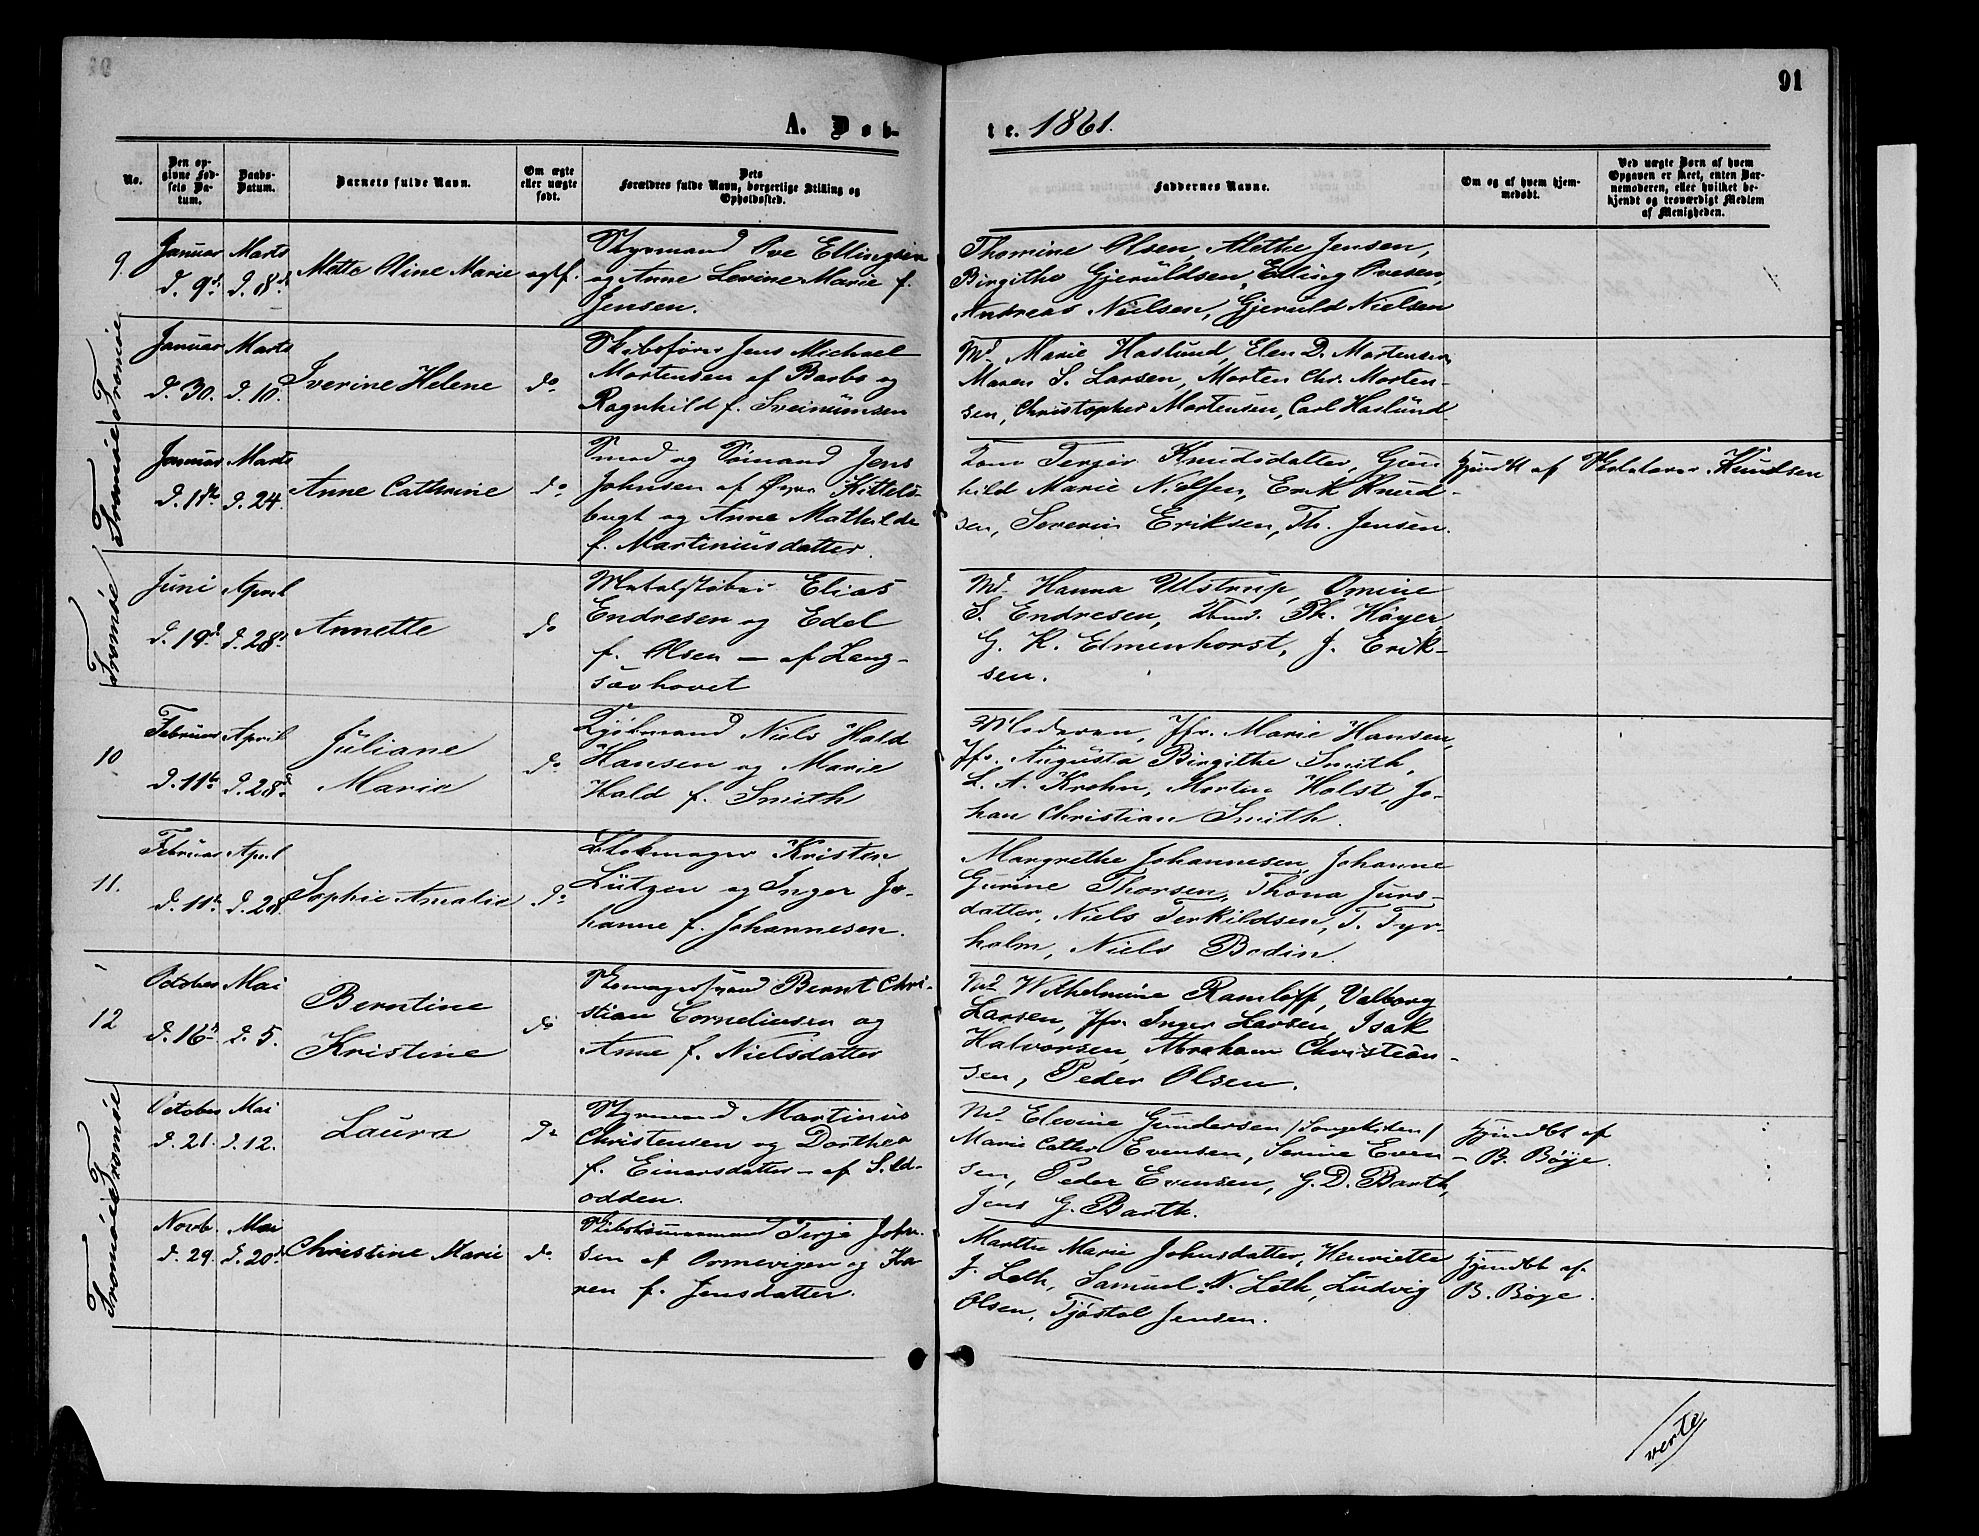 91
A. Døb-
te. 1861.
No.
Den op-
givne Fød-
sels Da-
tum.
Daabs-
Datum.
Barnets fulde Navn.
Om ægte
eller uægte
født.
Dets
Forældres fulde Navn, borgerlige Stilling og
Opholdssted.
Faddernes Navne.
Om og af hvem hjem-
medøbt.
Ved uægte Børn af hvem
Opgaven er skeet, enten Bar-
nemoderen, eller hvilket be-
kjendt og troværdigt Medlem
af Menigheden.
9.
Januar
d. 9d.
Marts
d. 8d.
Mette Oline Marie
ægtf.
Styrmand Ove Ellingsen
og Anne Lovine Marie f.
Jensen.
Thomine Olsen, Alethe Jensen,
Birgithe Gjeruldsen, Elling Ovesen,
Andreas Nielsen, Gjeruld Nielsen
Tromøe
Januar
d. 30.
Marts
d. 10.
Iverine Helene
do
Skibsfører Jens Michael
Mortensen af Barbo og
Ragnhild f. Sveinumsen
Md. Marie Haslund, Elen D. Mortensen,
Maren S. Larsen, Morten Chr. Morten-
sen, Christopher Mortensen, Carl Haslund
Tromøe
Januar
Marts
d. 24.
Anne Cathrine
do
Smed og Sømand Jens
Johnsen af Kittels-
bugt og Anne Mathilde
f. Martiniusdatter.
Terjer Knudsdatter, Gun
hild Marie Nielsen, Erik Knud-
sen, Severin Eriksen, Th. Jensen.
hjemdbt af
Knudsen
Tromøe
Juni
d. 19d.
April
d. 28.
Annette
do
Metalstøber Elias
Endresen og Edel
f. Olsen – af Lang-
sævhovet
Md. Hanna Ulstrup, Omine
S. Endresen, Stud. Th. Høyer,
G. K. Elmenhorst, J. Erik-
sen.
10
Februar
d. 11te
April
d. 28.
Juliane
Marie
do
Kjøbmand Niels Hald
Hansen og Marie
Hald f. Smith
Moderen, Jfr. Marie Hansen,
Jfr. Augusta Birgithe Smith,
L. A. Krohn, Morten Holst, Jo-
han Christian Smith.
11.
Februar
d. 11te
April
d. 28.
Sophie Amalie
do
Blokmager Kristen
Lützen og Inger Jo-
hanne f. Johannesen.
Margrethe Johannesen, Johanne
Gurine Thorsen, Thona Jurs-
datter, Niels Terkildsen, T. Tyr-
holm, Niels Bodin.
12
October
d. 16de
Mai
d. 5.
Berntine
Kristine
do
Skomagersvend Bernt Chri-
stian Corneliusen og
Anne f. Nielsdatter
Md. Wilhelmine Ramløff, Valborg
Larsen, Jfr. Inger Larsen, Isak
Halvorsen, Abraham Christian-
sen, Peder Olsen.
Tromøe
October
d. 21.
Mai
d. 12.
Laura
do
Styrmand Martinus
Christensen og Dorthea
f. Einarsdatter – af Sild-
odden.
Md. Elevine Gundersen /Songekilen/
Marie Cathr. Evensen, Serine Even-
sen, Peder Evensen, G. D. Barth,
Jens G. Barth.
hjemdbt af
B. Bøye.
Tromøe
Novb.
d. 29.
Mai
d. 20d.
Christine Marie
do
Skibstømmermand Terje John-
sen af Ormevigen og Ka-
ren f. Jensdatter.
Marthe Marie Johnsdatter, Henriette
J. Leth, Samuel N. Leth, Ludvig
Olsen, Tjøstol Jensen.
hjemdbt af
B. Bøye.
verte